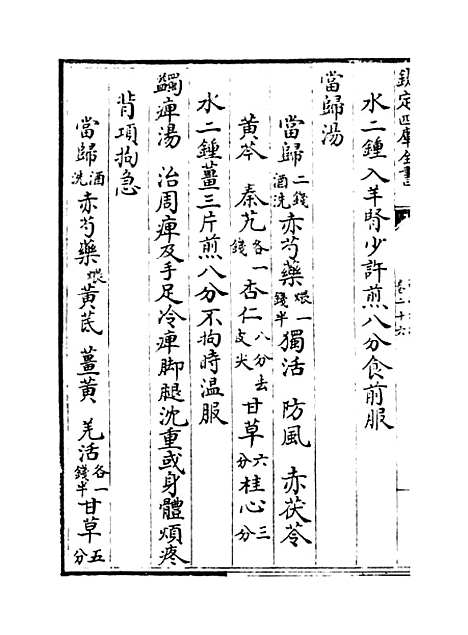 欽定四庫全書
卷二十六
水二鍾入羊腎少許煎八分食前服
當歸湯
當歸二錢酒洗赤芍藥煨一錢半獨活 防風 赤茯苓
黃芩 秦艽各一錢杏仁八分去皮尖甘草六分桂心三分
水二鍾薑三片煎八分不拘時温服
蠲痺湯 治周痺及手足冷痺脚腿沈重或身體煩疼
背項拘急
當歸酒洗赤芍藥煨黃芪 薑黃 羌活各一錢半甘草五分